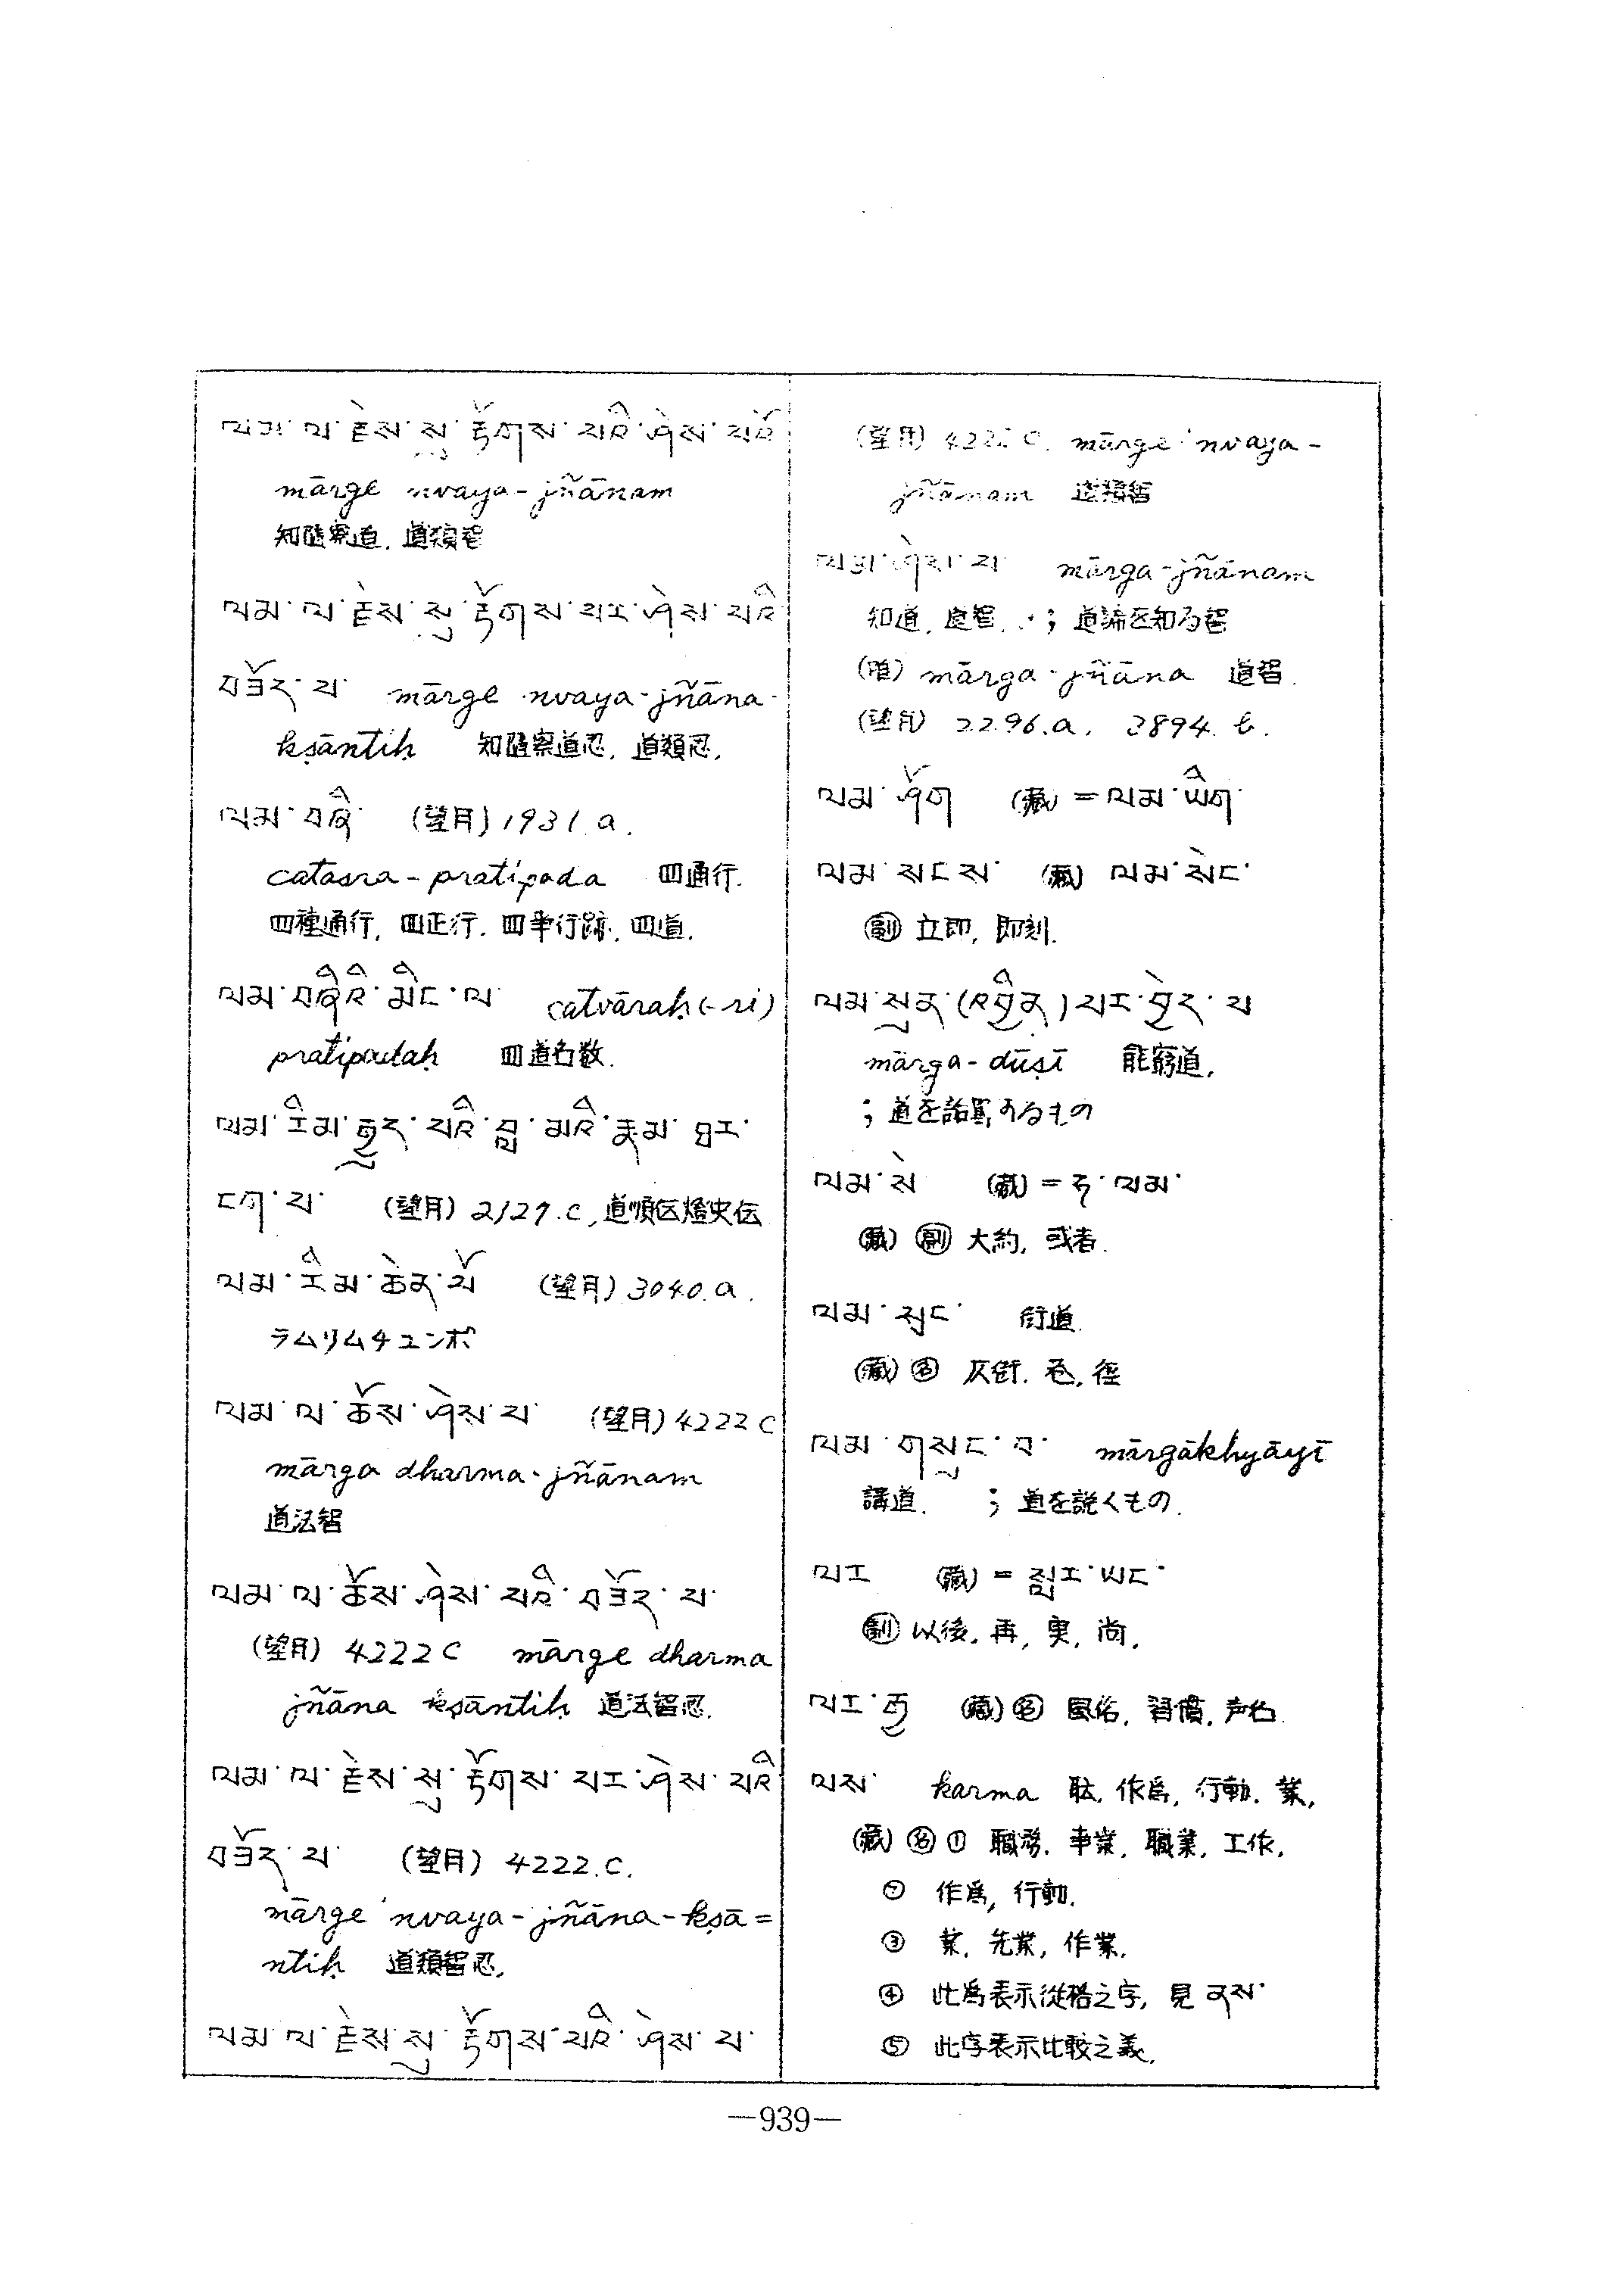 ལམ་ལ་རྗེས་སུ་རྟོགས་པའི་ཤེས་པའོ
mārge nvaya-jñānam
知隨察道. 道類智
ལམ་ལ་རྗེས་སུ་རྟོགས་པར་ཤེས་པའི
བཟོད་པ་ mārge nvaya-jñāna-
kṣāntiḥ 知隨察道忍, 道類忍,
ལམ་བཞི་ (望月) 1931.a.
catasra-pratipada 四通行.
四種通行, 四正行. 四事行跡, 四道.
ལམ་བཞིའི་མིང་ལ་ catvāraḥ(-ri)
pratipadaḥ 四道名数.
ལམ་རིམ་རྒྱུད་པའི་བླ་མའི་རྣམ་ཐར་
ངག་པ་ (望月) 2127.c, 道順伝燈史伝
ལམ་རིམ་ཆེན་པོ (望月) 3040.a.
ラムリムチェンポ
ལམ་ལ་ཆོས་ཤེས་པ་ (望月) 4222 C
mārga dharma-jñānam
道法智
ལམ་ལ་ཆོས་ཤེས་པའི་བཟོད་པ་
(望月) 4222 C mārge dharma
jñāna kṣāntiḥ 道法智忍.
ལམ་ལ་རྗེས་སུ་རྟོགས་པར་ཤེས་པའི
བཟོད་པ་ (望月) 4222.C.
mārge 'nvaya-jñāna-kṣā=
ntiḥ 道類智忍.
ལམ་ལ་རྗེས་སུ་རྟོགས་པའི་ཤེས་པ་
(望月) 4222 C. mārge 'nvaya-
jñānam 道類智
ལམ་ཤེས་པ་ mārga-jñānam
知道, 道智. ; 道諦を知る智
mārga-jñāna 道智.
(望月) 2296.a, 3894.b.
ལམ་ཤོག (藏) = ལམ་ཡིག་
ལམ་སངས་ (藏) ལམ་སེང་
副 立即, 即刻.
ལམ་སུན་(འབྱིན་)པར་བྱེད་པ
mārga-dūṣī 能窮道,
; 道を詬罵するもの
ལམ་སེ (藏) = ཧ་ལམ་
(藏) 副 大約, 或者.
ལམ་སྲང་ 街道.
(藏) 名 街. 巷, 徑
ལམ་གསུང་བ་ mārgākhyāyī
講道. ; 道を説くもの.
ལར (藏) = སླར་ཡང་
副 以後, 再, 更, 尚.
ལར་རྒྱུ (藏) 名 風俗, 習慣, 声名.
ལས་ karma 作為, 行動, 業,
(藏) 名 ① 職務. 事業, 職業, 工作.
② 作為, 行動.
③ 業, 先業, 作業.
④ 此為表示從格之字, 見 ནས་
⑤ 此字表示比較之義.
—939—